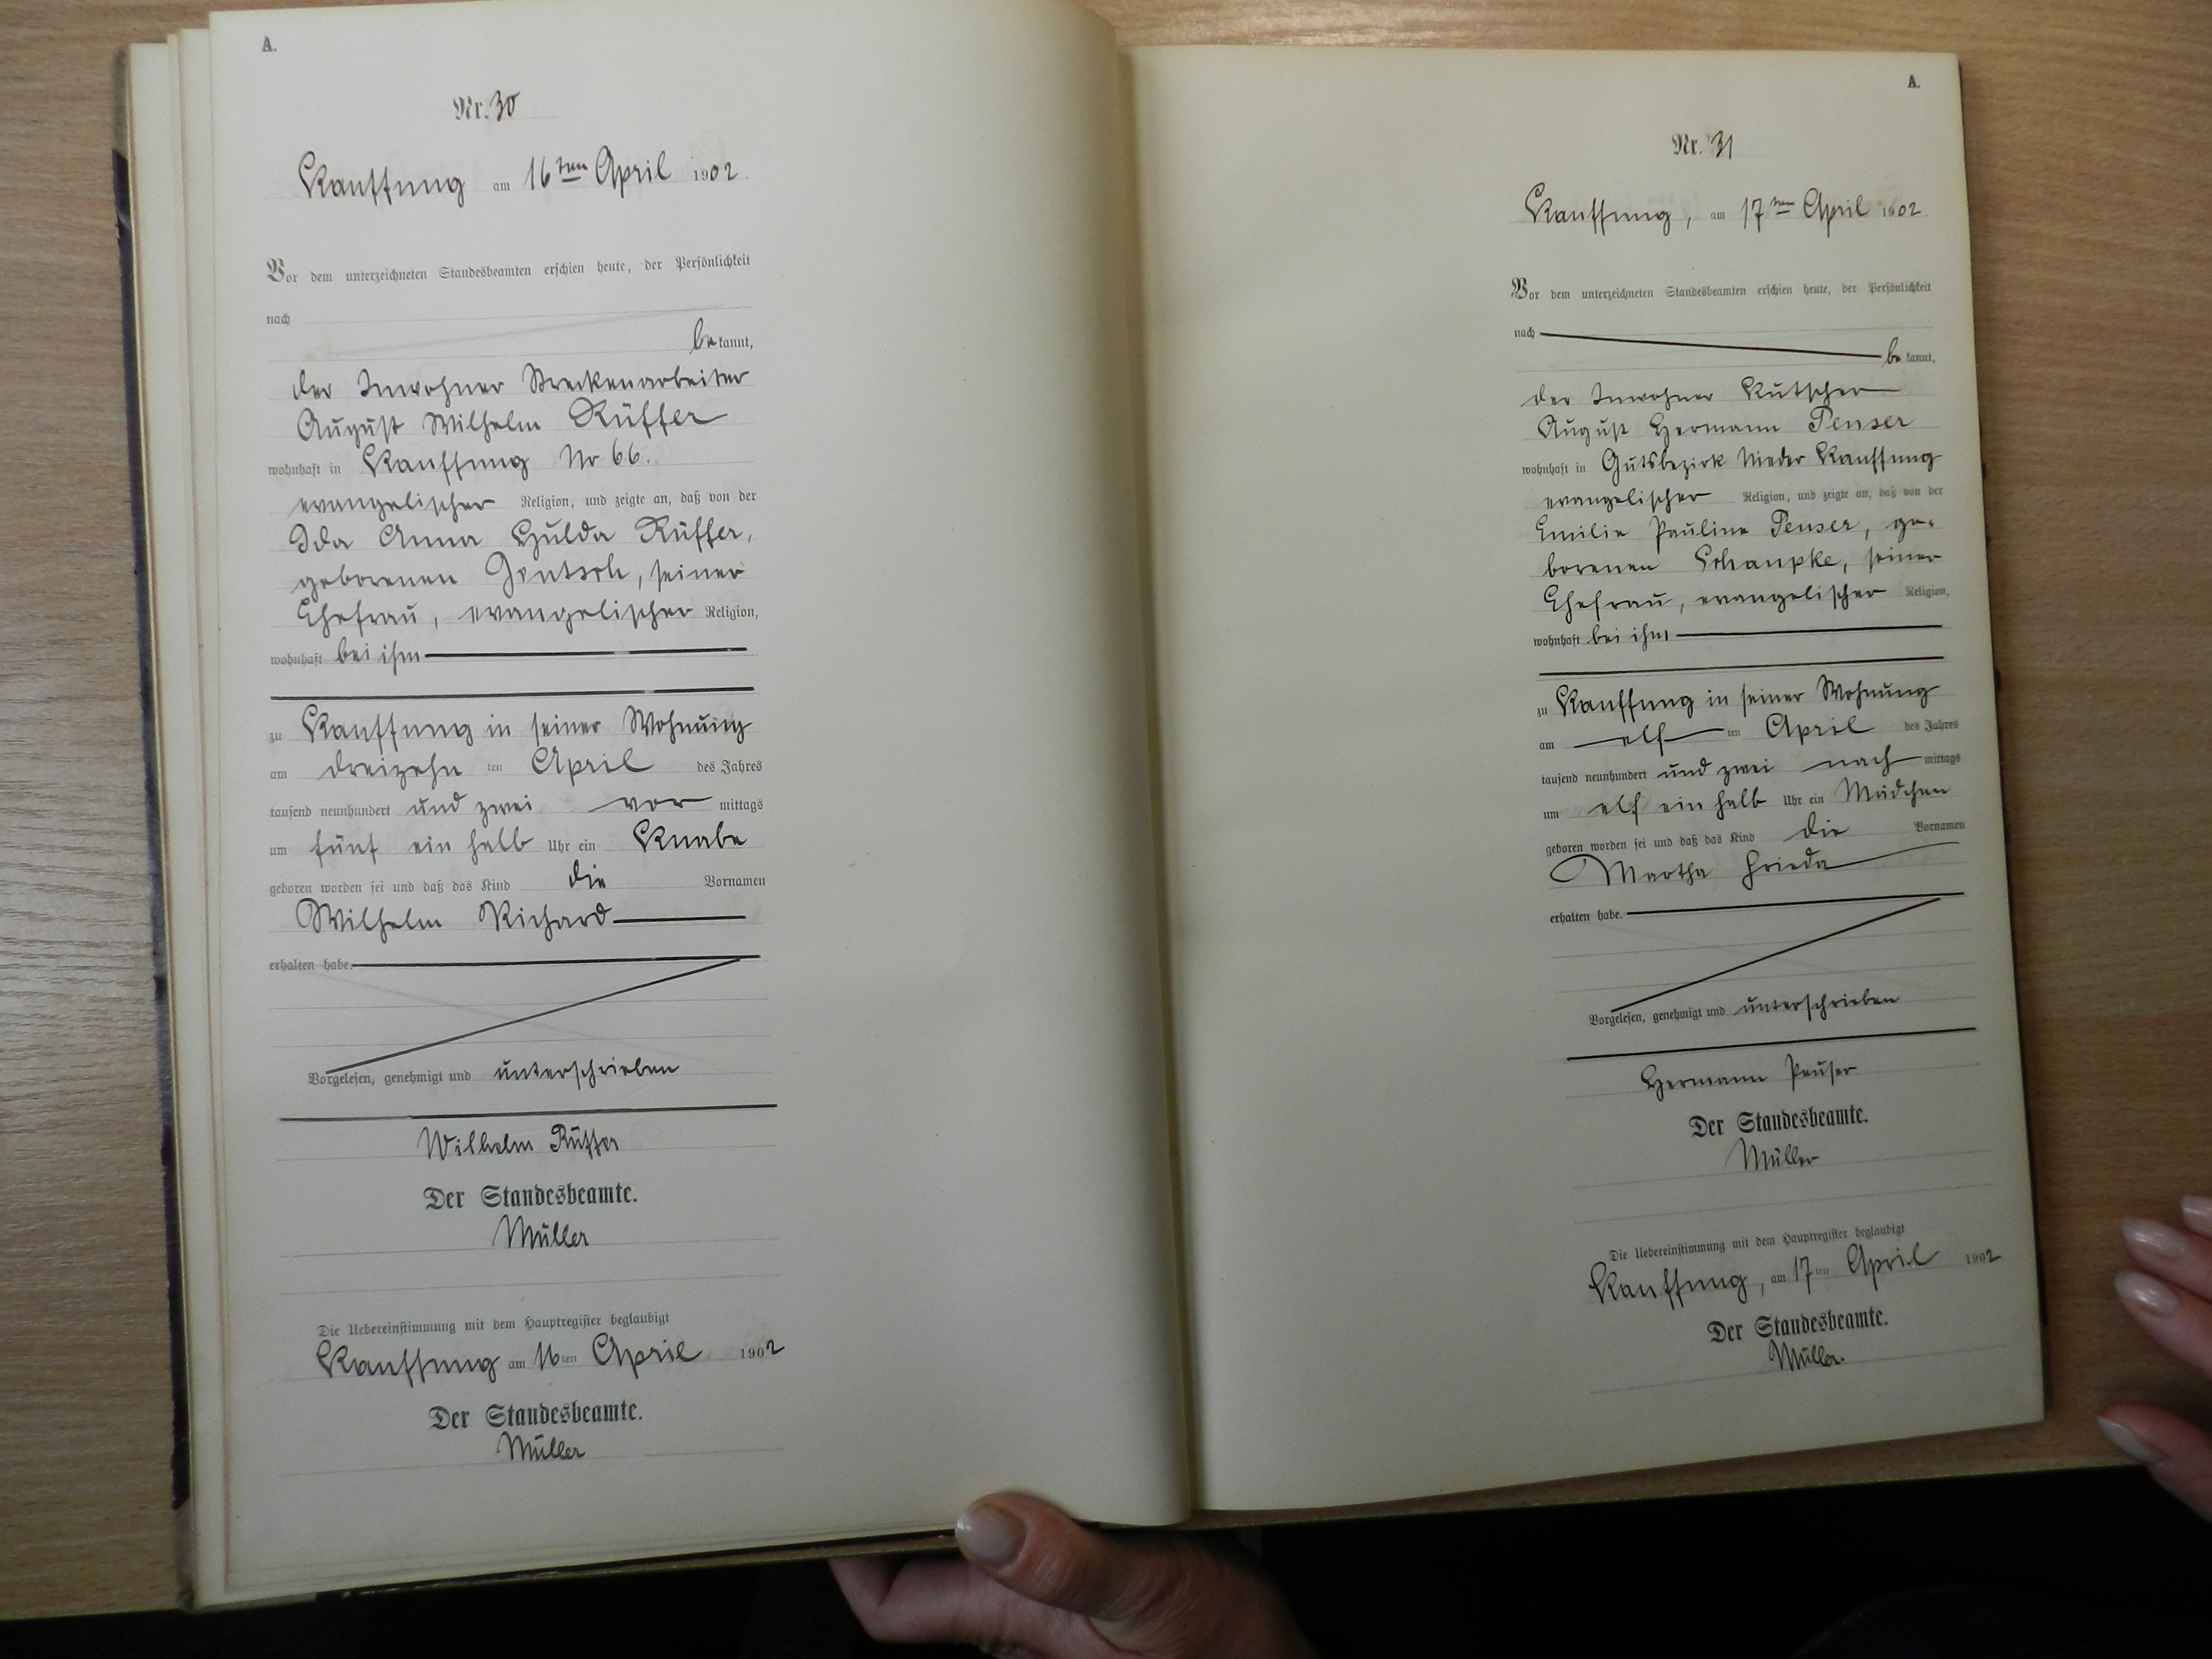 A.
Nr. 30
Kauffung am 16ten April 1902.
Vor dem unterzeichneten Standesbeamten erschien heute, der Persönlichkeit
nach
be kannt,
der Inwohner Streckenarbeiter
August Wilhelm Rüffer
wohnhaft in Kauffung Nr 66.
evangelischer Religion, und zeigte an, daß von der
Ida Anna Hulda Rüffer,
geborenen Jentsch, seiner
Ehefrau, evangelischer Religion,
wohnhaft bei ihm
zu Kauffung in seiner Wohnung
am dreizehn ten April des Jahres
tausend neunhundert und zwei vor mittags
um fünf ein halb Uhr ein Knabe
geboren worden sei und daß das Kind die Vornamen
Wilhelm Richard
erhalten habe.
Vorgelesen, genehmigt und unterschrieben
Wilhelm Rüffer
Der Standesbeamte.
Müller
Die Uebereinstimmung mit dem Hauptregister beglaubigt
Kauffung am 16ten April 1902
Der Standesbeamte.
Müller
A.
Nr. 31
Kauffung, am 17ten April 1902.
Vor dem unterzeichneten Standesbeamten erschien heute, der Persönlichkeit
nach
be kannt,
der Inwohner Kutscher
August Hermann Penser
wohnhaft in Gutsbezirk Nieder Kauffung
evangelischer Religion, und zeigte an, daß von der
Emilie Pauline Penser, ge-
borenen Schaupke, seiner
Ehefrau, evangelischer Religion,
wohnhaft bei ihm
zu Kauffung in seiner Wohnung
am elf ten April des Jahres
tausend neunhundert und zwei nach mittags
um elf ein halb Uhr ein Mädchen
geboren worden sei und daß das Kind die Vornamen
Martha Frieda
erhalten habe.
Vorgelesen, genehmigt und unterschrieben
Hermann Penser
Der Standesbeamte.
Müller
Die Uebereinstimmung mit dem Hauptregister beglaubigt
Kauffung, am 17ten April 1902
Der Standesbeamte.
Müller.